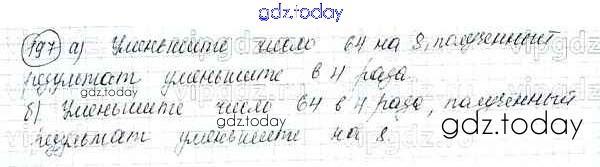 gdz.today
197 а) Уменьшите число 64 на 8, полученный
результат уменьшите в 4 раза
б) Уменьшите число 64 в 4 раза, полученный
результат уменьшите на 8.
gdz.today